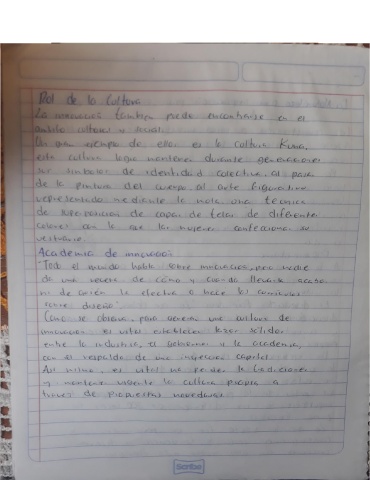 Rol de la Cultura
La innovación también puede encontrarse en el
ámbito cultural y social.
Un ejemplo de ello es la cultura Kuna,
esta cultura logra mantener durante generaciones
sus símbolos de identidad colectiva, al pasar
de la pintura del cuerpo al arte figurativo
representado mediante la mola, una técnica
de superposición de capas de telas de diferentes
colores con la que las mujeres confeccionan su
vestuario.
Academia de innovación
"Todo el mundo habla sobre innovación, pero nadie
da una receta de cómo y cuando llevarla
sobre diseño"
Como se observa, para generar una cultura de
innovación es vital establecer lazos solidos
entre la industria, el gobierno y la academia,
con el respaldo de una capital
Asi mismo, es vital no perder la tradiciones
y mantener vigente la cultura propia a
traves de propuestas novedosas.
Scribe